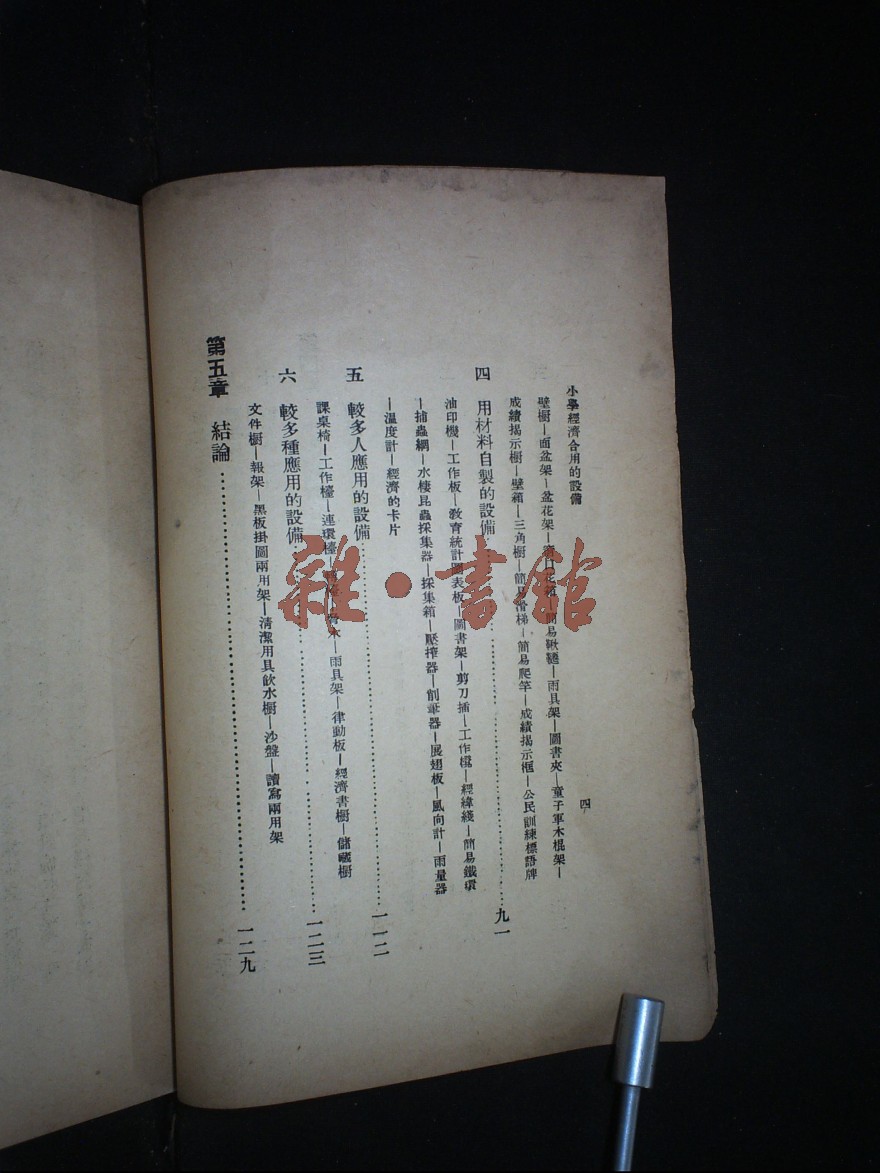 小學經濟合用的設備
四
壁橱—面盆架—盆花架—窗口花箱—簡易鞦韆—雨具架—圖書夾—童子軍木棍架—
成績揭示橱—壁箱—三角橱—簡易滑梯—簡易爬竿—成績揭示框—公民訓練標語牌
四 用材料自製的設備……九一
油印機—工作板—教育統計圖表板—圖書架—剪刀插—工作檯—經緯綫—簡易鐵環
—捕蟲網—水棲昆蟲採集器—採集箱—壓搾器—削筆器—展翅板—風向計—雨量器
—溫度計—經濟的卡片
五 較多人應用的設備……一一二
課桌椅—工作檯—連環檯—木—雨具架—律動板—經濟書橱—儲藏橱
六 較多種應用的設備……一二三
文件橱—報架—黑板掛圖兩用架—清潔用具飲水橱—沙盤—讀寫兩用架
第五章 結論……一二九
雜·書館